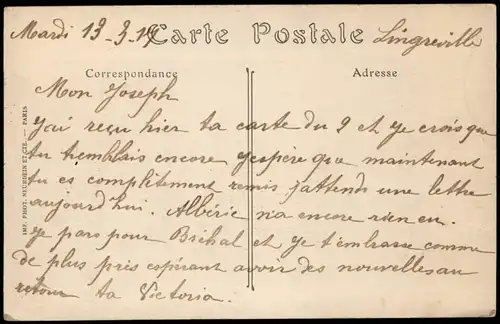 Mardi 13-3-17 Carte Postale Lingreville
Correspondance Adresse
Mon Joseph
J'ai reçu hier ta carte du 9 et je crois que
tu tremblais encore j'espère que maintenant
tu es complètement remis j'attends une lettre
aujourd'hui. Albéric n'a encore rien eu.
je pars pour Bréhal et je t'embrasse comme
de plus près espérant avoir des nouvelles au
retour ta Victoria.
IMP. PHOT. NEURDEIN ET CIE. — PARIS